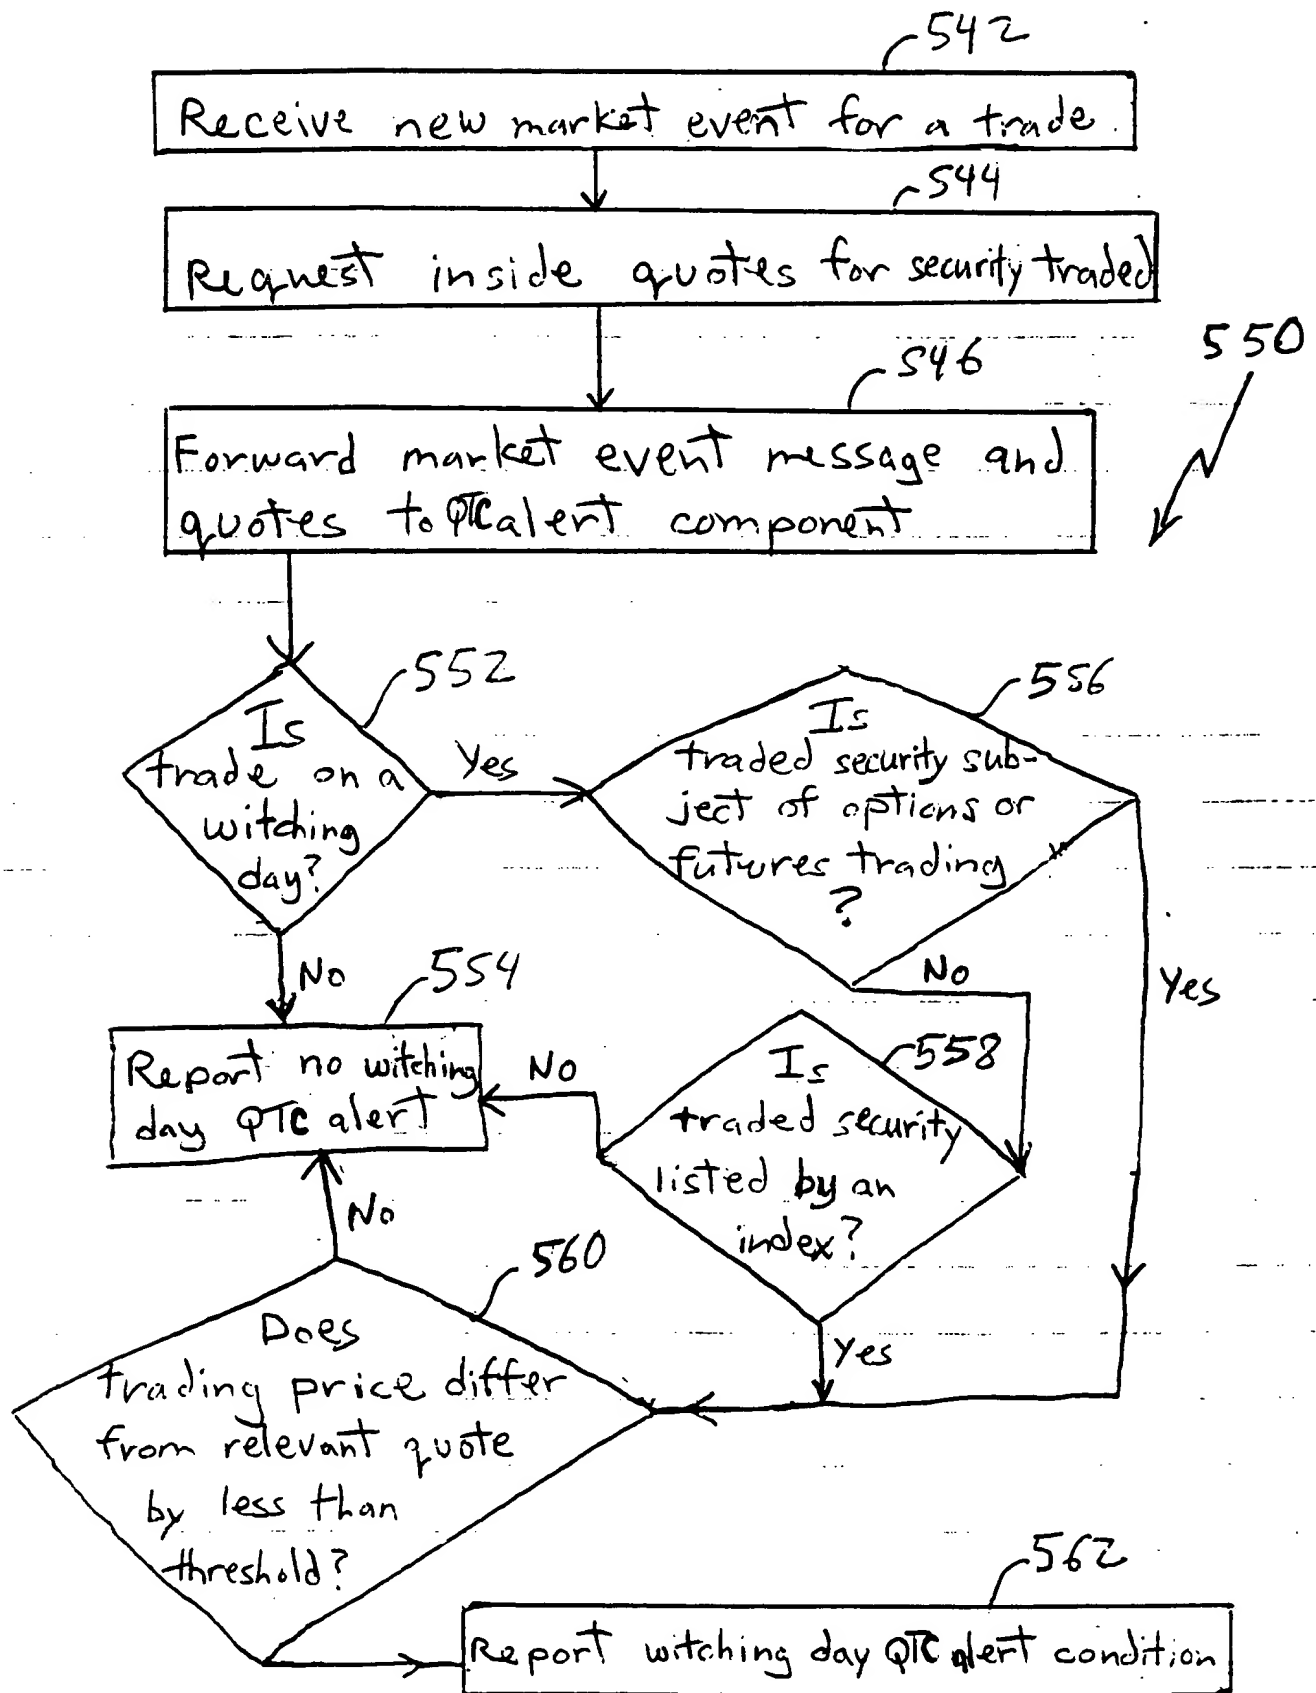 542
Receive new market event for a trade
544
Request inside quotes for security traded
550
546
Forward market event message and
quotes to QTC alert component
552
Is
trade on a
witching
day?
Yes
556
Is
traded security sub-
ject of options or
futures trading
?
No
554
Report no witching
day QTC alert
No
Yes
No
558
Is
traded security
listed by an
index?
No
560
Does
trading price differ
from relevant quote
by less than
threshold?
Yes
562
Report witching day QTC alert condition